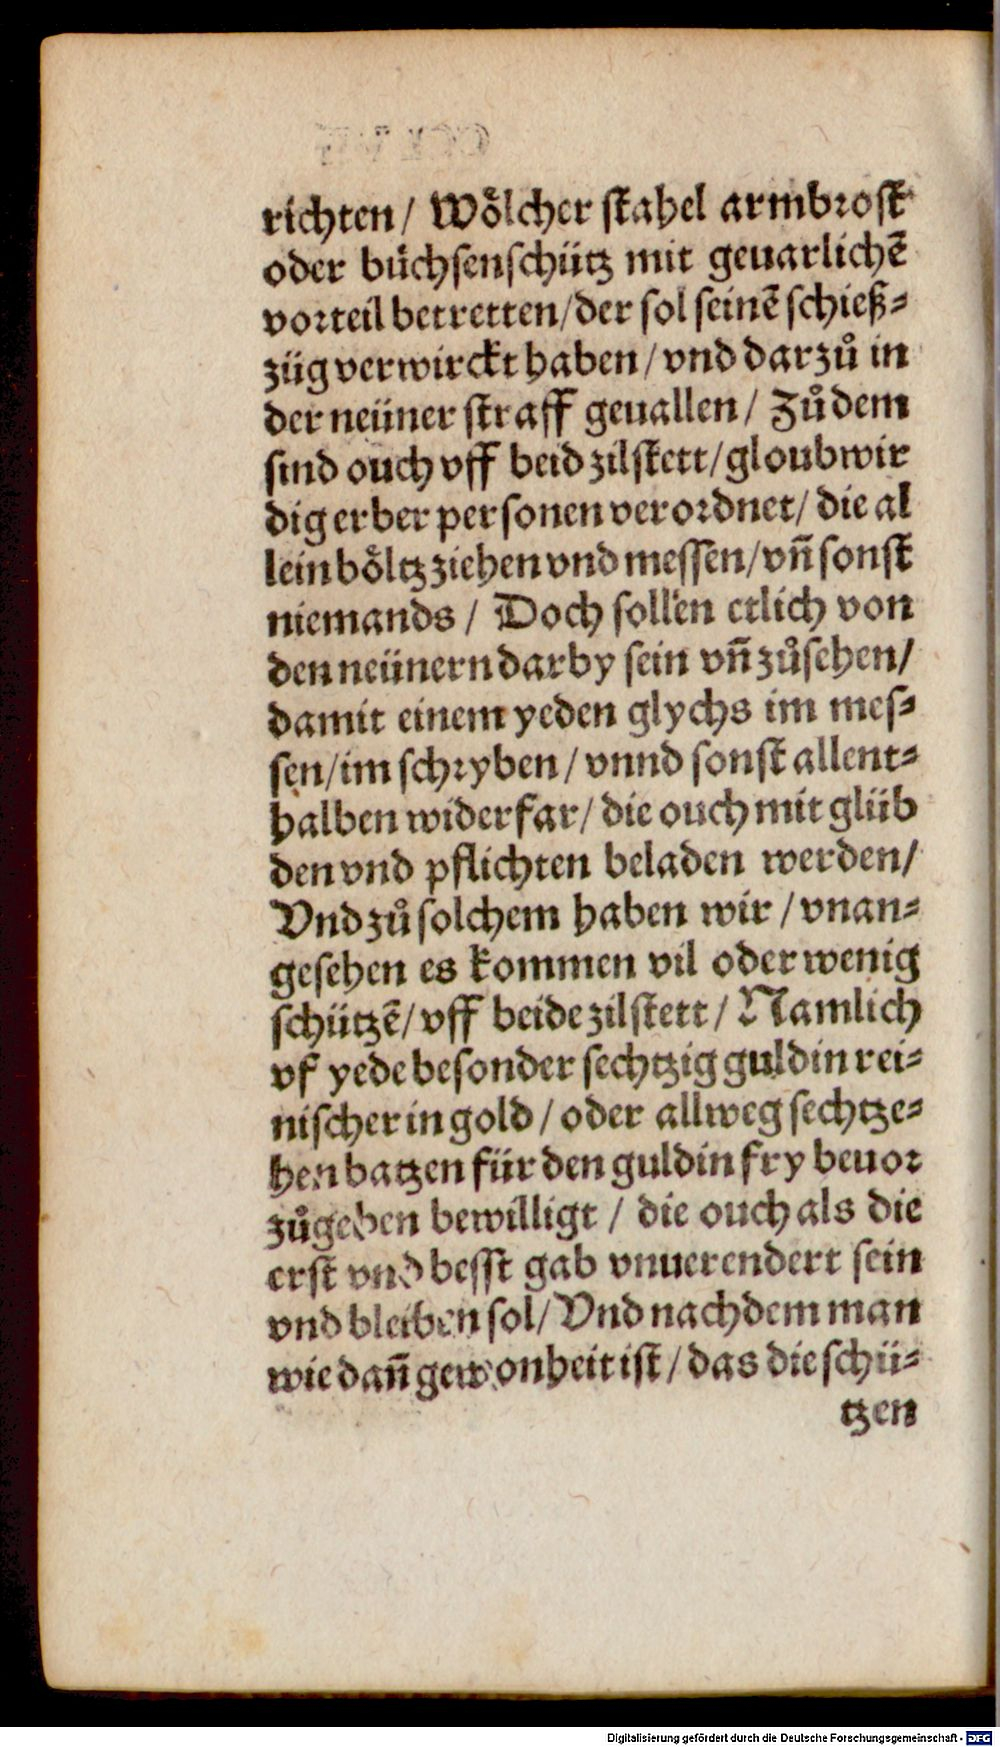 richten/ Woͤlcher stahel armbrost
oder buͤchsenschütz mit geuarlichẽ
vorteil betretten/der sol seinẽ schieß⸗
züg verwirckt haben/vnd darzuͦ in
der neüner straff geuallen/ Zuͦdem
sind ouch vff beid zilstett/gloubwir
dig erber personen verordnet/ die al
lein boͤltz ziehen vnd messen/vñ sonst
niemands / Doch sollen etlich von
den neünern darby sein vñ zuͦsehen/
damit einem yeden glychs im mes⸗
sen/im schryben/vnnd sonst allent⸗
halben widerfar/die ouch mit glüb
den vnd pflichten beladen werden/
Vnd zuͦ solchem haben wir/vnan⸗
gesehen es kommen vil oder wenig
schützẽ/vff beide zilstett/Namlich
vf yede besonder sechtzig guldin rei⸗
nischer in gold/oder allweg sechtze⸗
hen batzen für den guldin fry beuor
zuͦgeben bewilligt / die ouch als die
erst vnd besst gab vnuerendert sein
vnd bleiben sol/Vnd nachdem man
wie dañ gewonheit ist/das die schü⸗
tzen
Digitalisierung gefördert durch die Deutsche Forschungsgemeinschaft - DFG